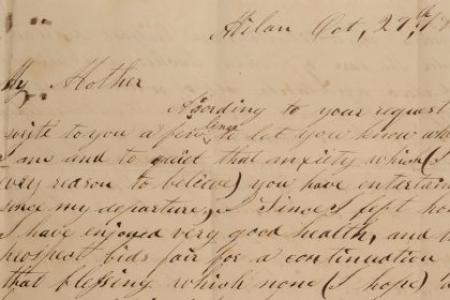 Milan Oct, 29th, 18
My Mother
Acording to your request
write to you a few lines to let you know wh
I am and to quiet that anxiety which (I
very reason to believe) you have entertain
since my departure, Since I left ho
I have enjoyed very good health, and
prospect bids fair for a continuation
that blessing which none (I hope)